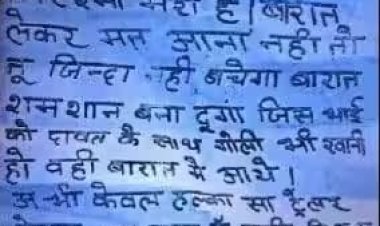 मेरी है। बारात
लेकर मत आना नही तो
तू जिन्दा नही बचेगा बारात
शमशान बना दूगा जिस भाई
को दावत के साथ गोली भी खानी
हो वही बारात मै आये।
अभी केवल हल्का सा ट्रेलर